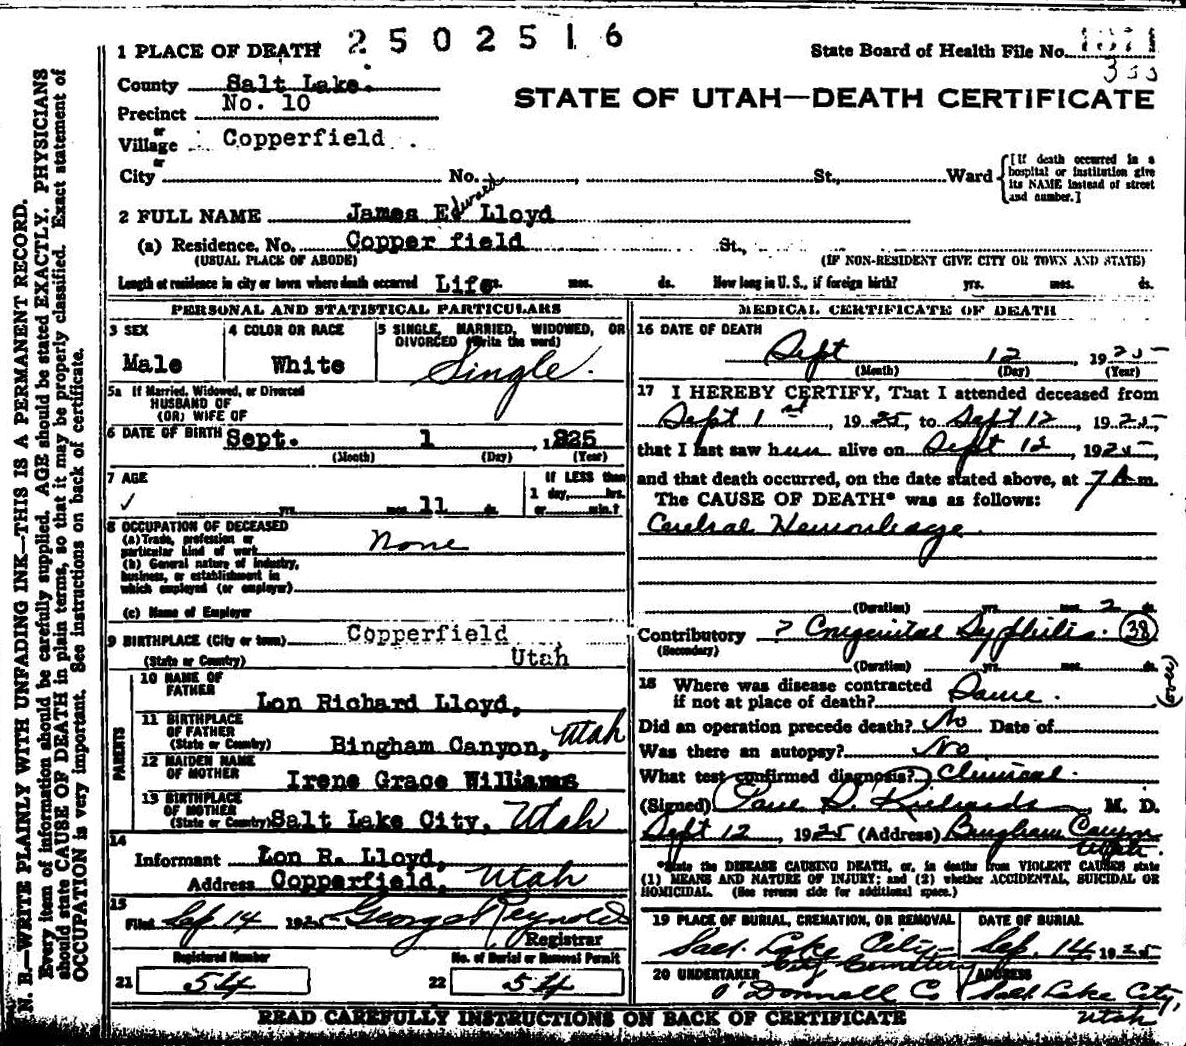 1 PLACE OF DEATH 2502516 State Board of Health File No.
County Salt Lake.
Precinct No. 10
STATE OF UTAH—DEATH CERTIFICATE
or
Village Copperfield
or
City No. St., Ward
[If death occurred in a hospital or institution give its NAME instead of street and number.]
2 FULL NAME James Edward Lloyd
(a) Residence, No. Copper field St.,
(USUAL PLACE OF ABODE) (IF NON-RESIDENT GIVE CITY OR TOWN AND STATE)
Length of residence in city or town where death occurred Life yrs. mos. ds. How long in U. S., if foreign birth? yrs. mos. ds.
PERSONAL AND STATISTICAL PARTICULARS
3 SEX
Male
4 COLOR OR RACE
White
5 SINGLE, MARRIED, WIDOWED, OR DIVORCED (Write the word)
Single.
5a If Married, Widowed, or Divorced
HUSBAND OF
(OR) WIFE OF
6 DATE OF BIRTH Sept. 1, 1925
(Month) (Day) (Year)
7 AGE
yrs. mos. 11 ds.
If LESS than
1 day, hrs.
or min.?
8 OCCUPATION OF DECEASED
(a) Trade, profession or
particular kind of work None
(b) General nature of industry,
business, or establishment in
which employed (or employer)
(c) Name of Employer
9 BIRTHPLACE (City or town) Copperfield
(State or Country) Utah
PARENTS
10 NAME OF FATHER
Lon Richard Lloyd,
11 BIRTHPLACE OF FATHER
(State or Country) Bingham Canyon, Utah
12 MAIDEN NAME OF MOTHER
Irene Grace Williams
13 BIRTHPLACE OF MOTHER
(State or Country) Salt Lake City, Utah
14
Informant Lon R. Lloyd,
Address Copperfield, Utah
15
Filed Sep. 14 1925 George Reynolds
Registrar
Registered Number
21 54
No. of Burial or Removal Permit
22 54
MEDICAL CERTIFICATE OF DEATH
16 DATE OF DEATH
Sept 12, 1925
(Month) (Day) (Year)
17 I HEREBY CERTIFY, That I attended deceased from
Sept 1st, 1925, to Sept 12, 1925,
that I last saw him alive on Sept 12, 1925,
and that death occurred, on the date stated above, at 7 A m.
The CAUSE OF DEATH* was as follows:
Cerebral Hemorrhage.
(Duration) yrs. mos. 2 ds.
Contributory ? Congenital Syphilis. (38)
(Secondary)
(Duration) yrs. mos. ds.
(over)
18 Where was disease contracted
if not at place of death? Same.
Did an operation precede death? No Date of
Was there an autopsy? No
What test confirmed diagnosis? Clinical.
(Signed) Paul S. Richards, M. D.
Sept 12, 1925 (Address) Bingham Canyon
Utah.
*State the DISEASE CAUSING DEATH, or, in deaths from VIOLENT CAUSES state
(1) MEANS AND NATURE OF INJURY; and (2) whether ACCIDENTAL, SUICIDAL OR
HOMICIDAL. (See reverse side for additional space.)
19 PLACE OF BURIAL, CREMATION, OR REMOVAL
Salt Lake City
City Cemetery
DATE OF BURIAL
Sep. 14 1925
20 UNDERTAKER
O'Donnell Co
ADDRESS
Salt Lake City,
Utah
READ CAREFULLY INSTRUCTIONS ON BACK OF CERTIFICATE
N. B.—WRITE PLAINLY WITH UNFADING INK—THIS IS A PERMANENT RECORD.
Every item of information should be carefully supplied. AGE should be stated EXACTLY. PHYSICIANS
should state CAUSE OF DEATH in plain terms, so that it may be properly classified. Exact statement of
OCCUPATION is very important. See instructions on back of certificate.